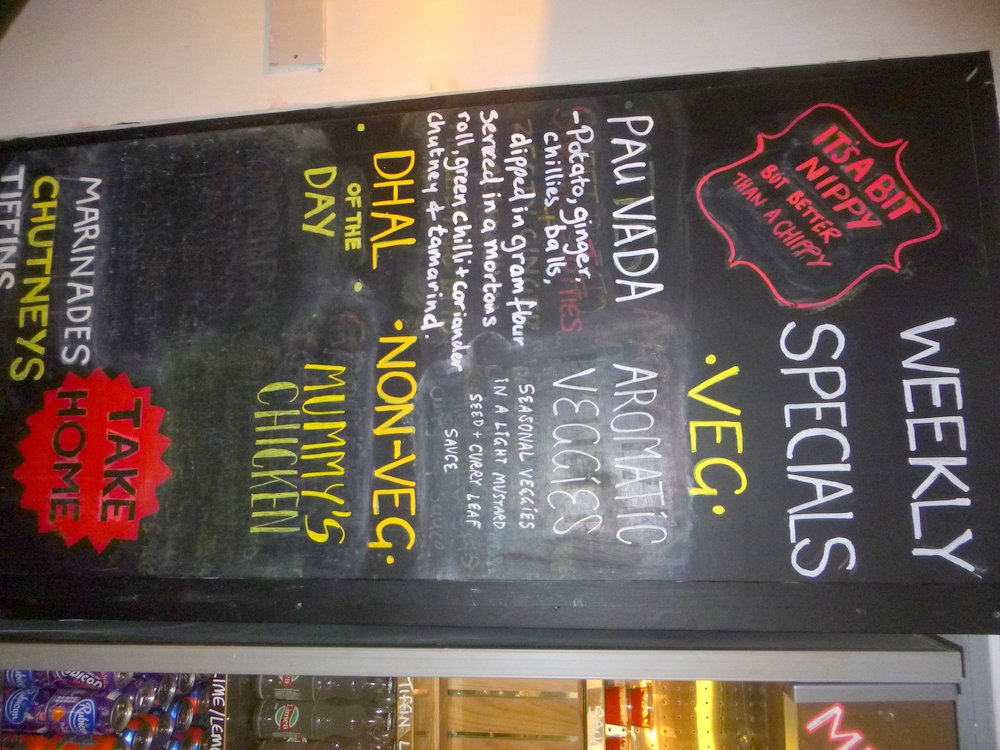 WEEKLY
SPECIALS
IT'S A BIT
NIPPY
BUT BETTER
THAN A CHIPPY
• VEG •
• PAU VADA
- Potato, ginger,
chillies, balls,
dipped in gram flour
Served in a mortons
roll, green chilli + coriander
chutney & tamarind.
AROMATIC
VEGGIES
SEASONAL VEGGIES
IN A LIGHT MUSTARD
SEED + CURRY LEAF
SAUCE
• DHAL •
OF THE
DAY
• NON-VEG •
MUMMY'S
CHICKEN
MARINADES
CHUTNEYS
TIFFINS
TAKE
HOME